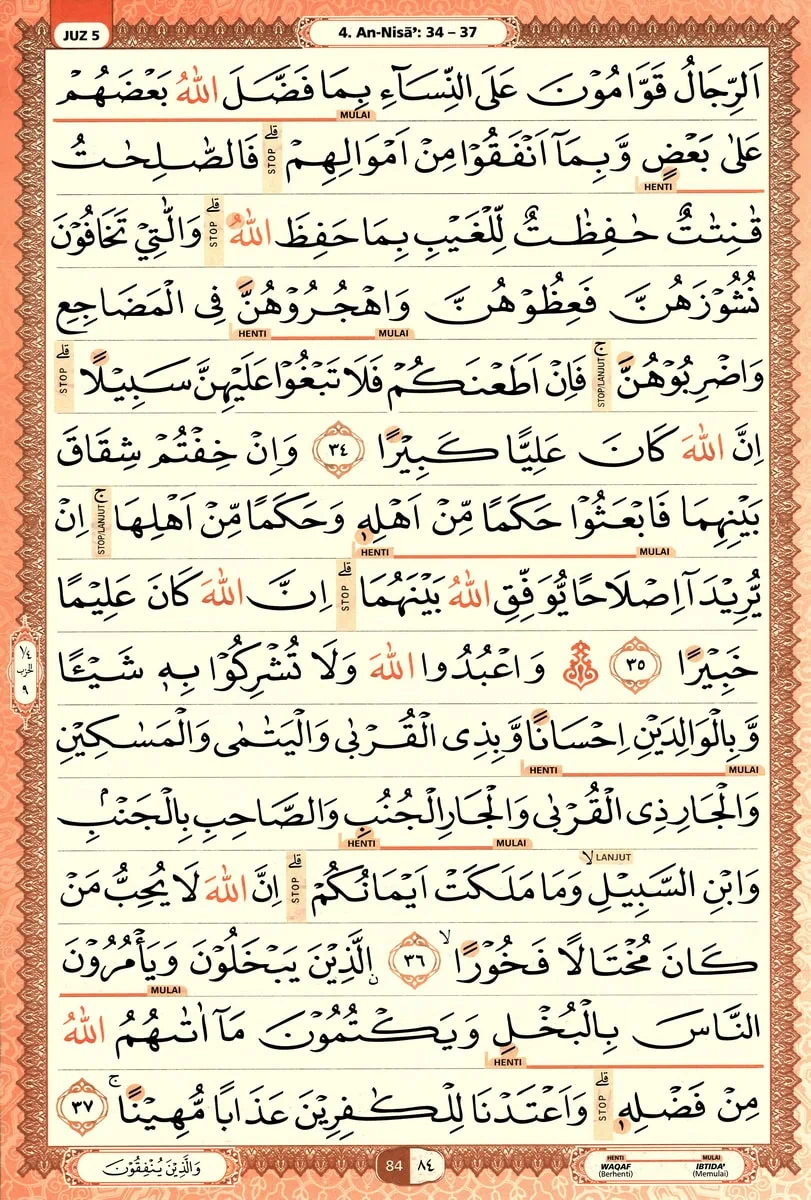 JUZ 5
4. An-Nisā': 34 – 37
اَلرِّجَالُ قَوَّامُوْنَ عَلَى النِّسَاۤءِ بِمَا فَضَّلَ اللّٰهُ بَعْضَهُمْ
MULAI
عَلٰى بَعْضٍ وَّبِمَآ اَنْفَقُوْا مِنْ اَمْوَالِهِمْ ۗ فَالصّٰلِحٰتُ
STOP
HENTI
قٰنِتٰتٌ حٰفِظٰتٌ لِّلْغَيْبِ بِمَا حَفِظَ اللّٰهُ ۗ وَالّٰتِيْ تَخَافُوْنَ
STOP
نُشُوْزَهُنَّ فَعِظُوْهُنَّ وَاهْجُرُوْهُنَّ فِى الْمَضَاجِعِ
MULAI HENTI
وَاضْرِبُوْهُنَّ ۚ فَاِنْ اَطَعْنَكُمْ فَلَا تَبْغُوْا عَلَيْهِنَّ سَبِيْلًا ۗ
STOP/LANJUT STOP
اِنَّ اللّٰهَ كَانَ عَلِيًّا كَبِيْرًا ٣٤ وَاِنْ خِفْتُمْ شِقَاقَ
بَيْنِهِمَا فَابْعَثُوْا حَكَمًا مِّنْ اَهْلِهٖ وَحَكَمًا مِّنْ اَهْلِهَا ۚ اِنْ
STOP/LANJUT
MULAI HENTI
يُّرِيْدَآ اِصْلَاحًا يُّوَفِّقِ اللّٰهُ بَيْنَهُمَا ۗ اِنَّ اللّٰهَ كَانَ عَلِيْمًا
STOP
خَبِيْرًا ٣٥ ۞ وَاعْبُدُوا اللّٰهَ وَلَا تُشْرِكُوْا بِهٖ شَيْـًٔا
١/٤
الحزب
٩
وَّبِالْوَالِدَيْنِ اِحْسَانًا وَّبِذِى الْقُرْبٰى وَالْيَتٰمٰى وَالْمَسٰكِيْنِ
MULAI HENTI
وَالْجَارِ ذِى الْقُرْبٰى وَالْجَارِ الْجُنُبِ وَالصَّاحِبِ بِالْجَنْۢبِ
MULAI HENTI
وَابْنِ السَّبِيْلِ ۙ وَمَا مَلَكَتْ اَيْمَانُكُمْ ۗ اِنَّ اللّٰهَ لَا يُحِبُّ مَنْ
LANJUT STOP
كَانَ مُخْتَالًا فَخُوْرًا ۙ ٣٦ ۨالَّذِيْنَ يَبْخَلُوْنَ وَيَأْمُرُوْنَ
MULAI
النَّاسَ بِالْبُخْلِ وَيَكْتُمُوْنَ مَآ اٰتٰىهُمُ اللّٰهُ
HENTI
مِنْ فَضْلِهٖ ۗ وَاَعْتَدْنَا لِلْكٰفِرِيْنَ عَذَابًا مُّهِيْنًا ۚ ٣٧
STOP
وَالَّذِيْنَ يُنْفِقُوْنَ
84 ٨٤
HENTI MULAI
WAQAF IBTIDA'
(Berhenti) (Memulai)